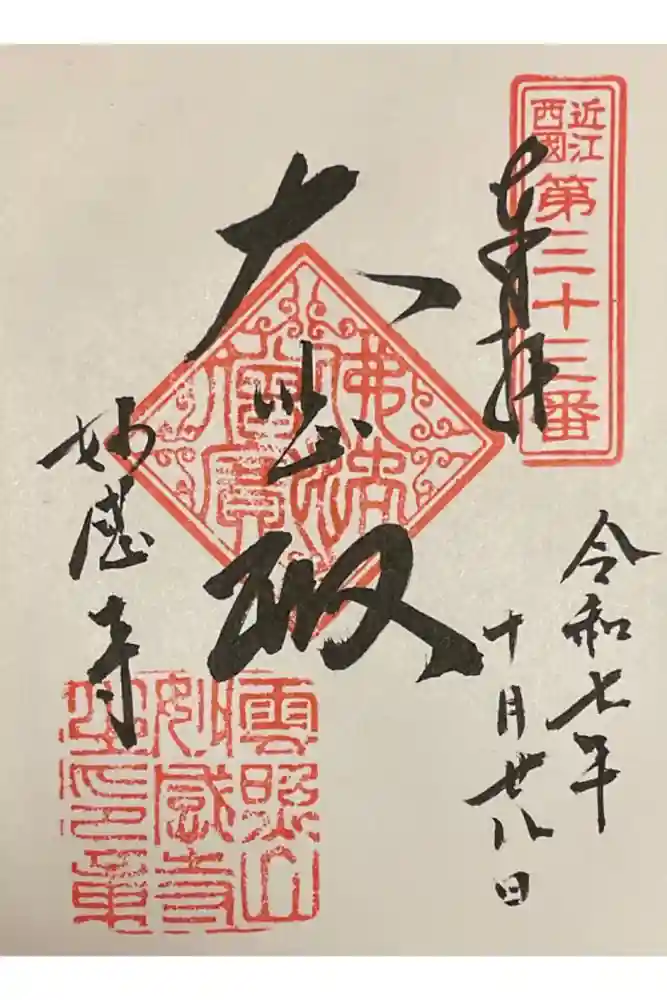 近江
西國
第三十三番
奉拝
令和七年
十月廿八日
大悲殿
佛法
僧寳
妙感寺
雲照山
妙感寺
印章